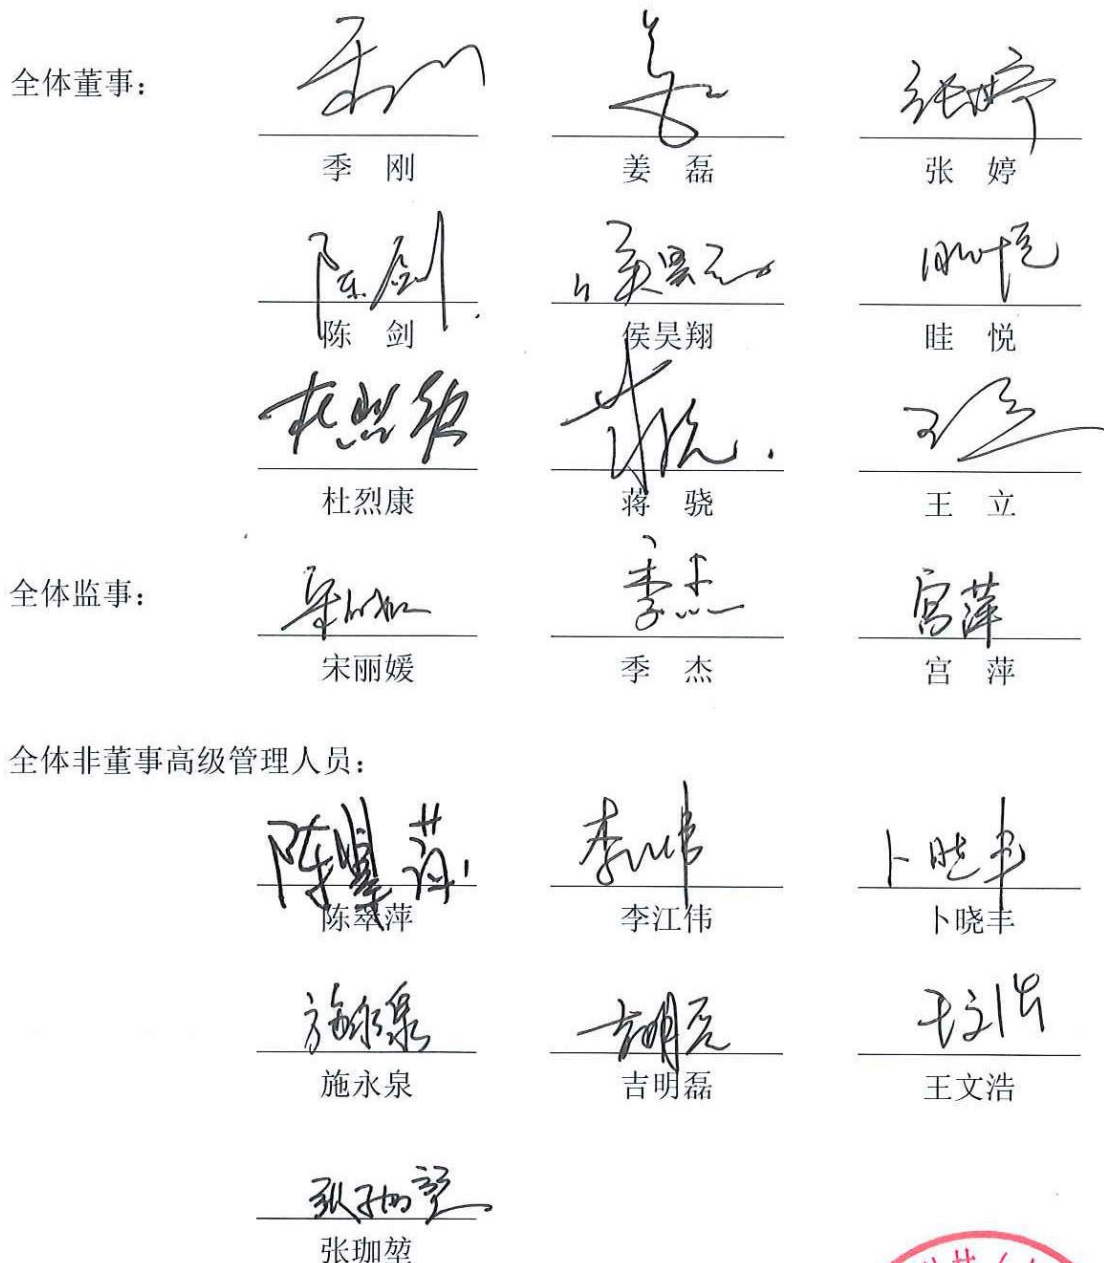 全体董事：
季 刚 姜 磊 张 婷
陈 剑 侯昊翔 眭 悦
杜烈康 蒋 骁 王 立
全体监事：
宋丽媛 季 杰 宫 萍
全体非董事高级管理人员：
陈翠萍 李江伟 卜晓丰
施永泉 吉明磊 王文浩
张珈堃